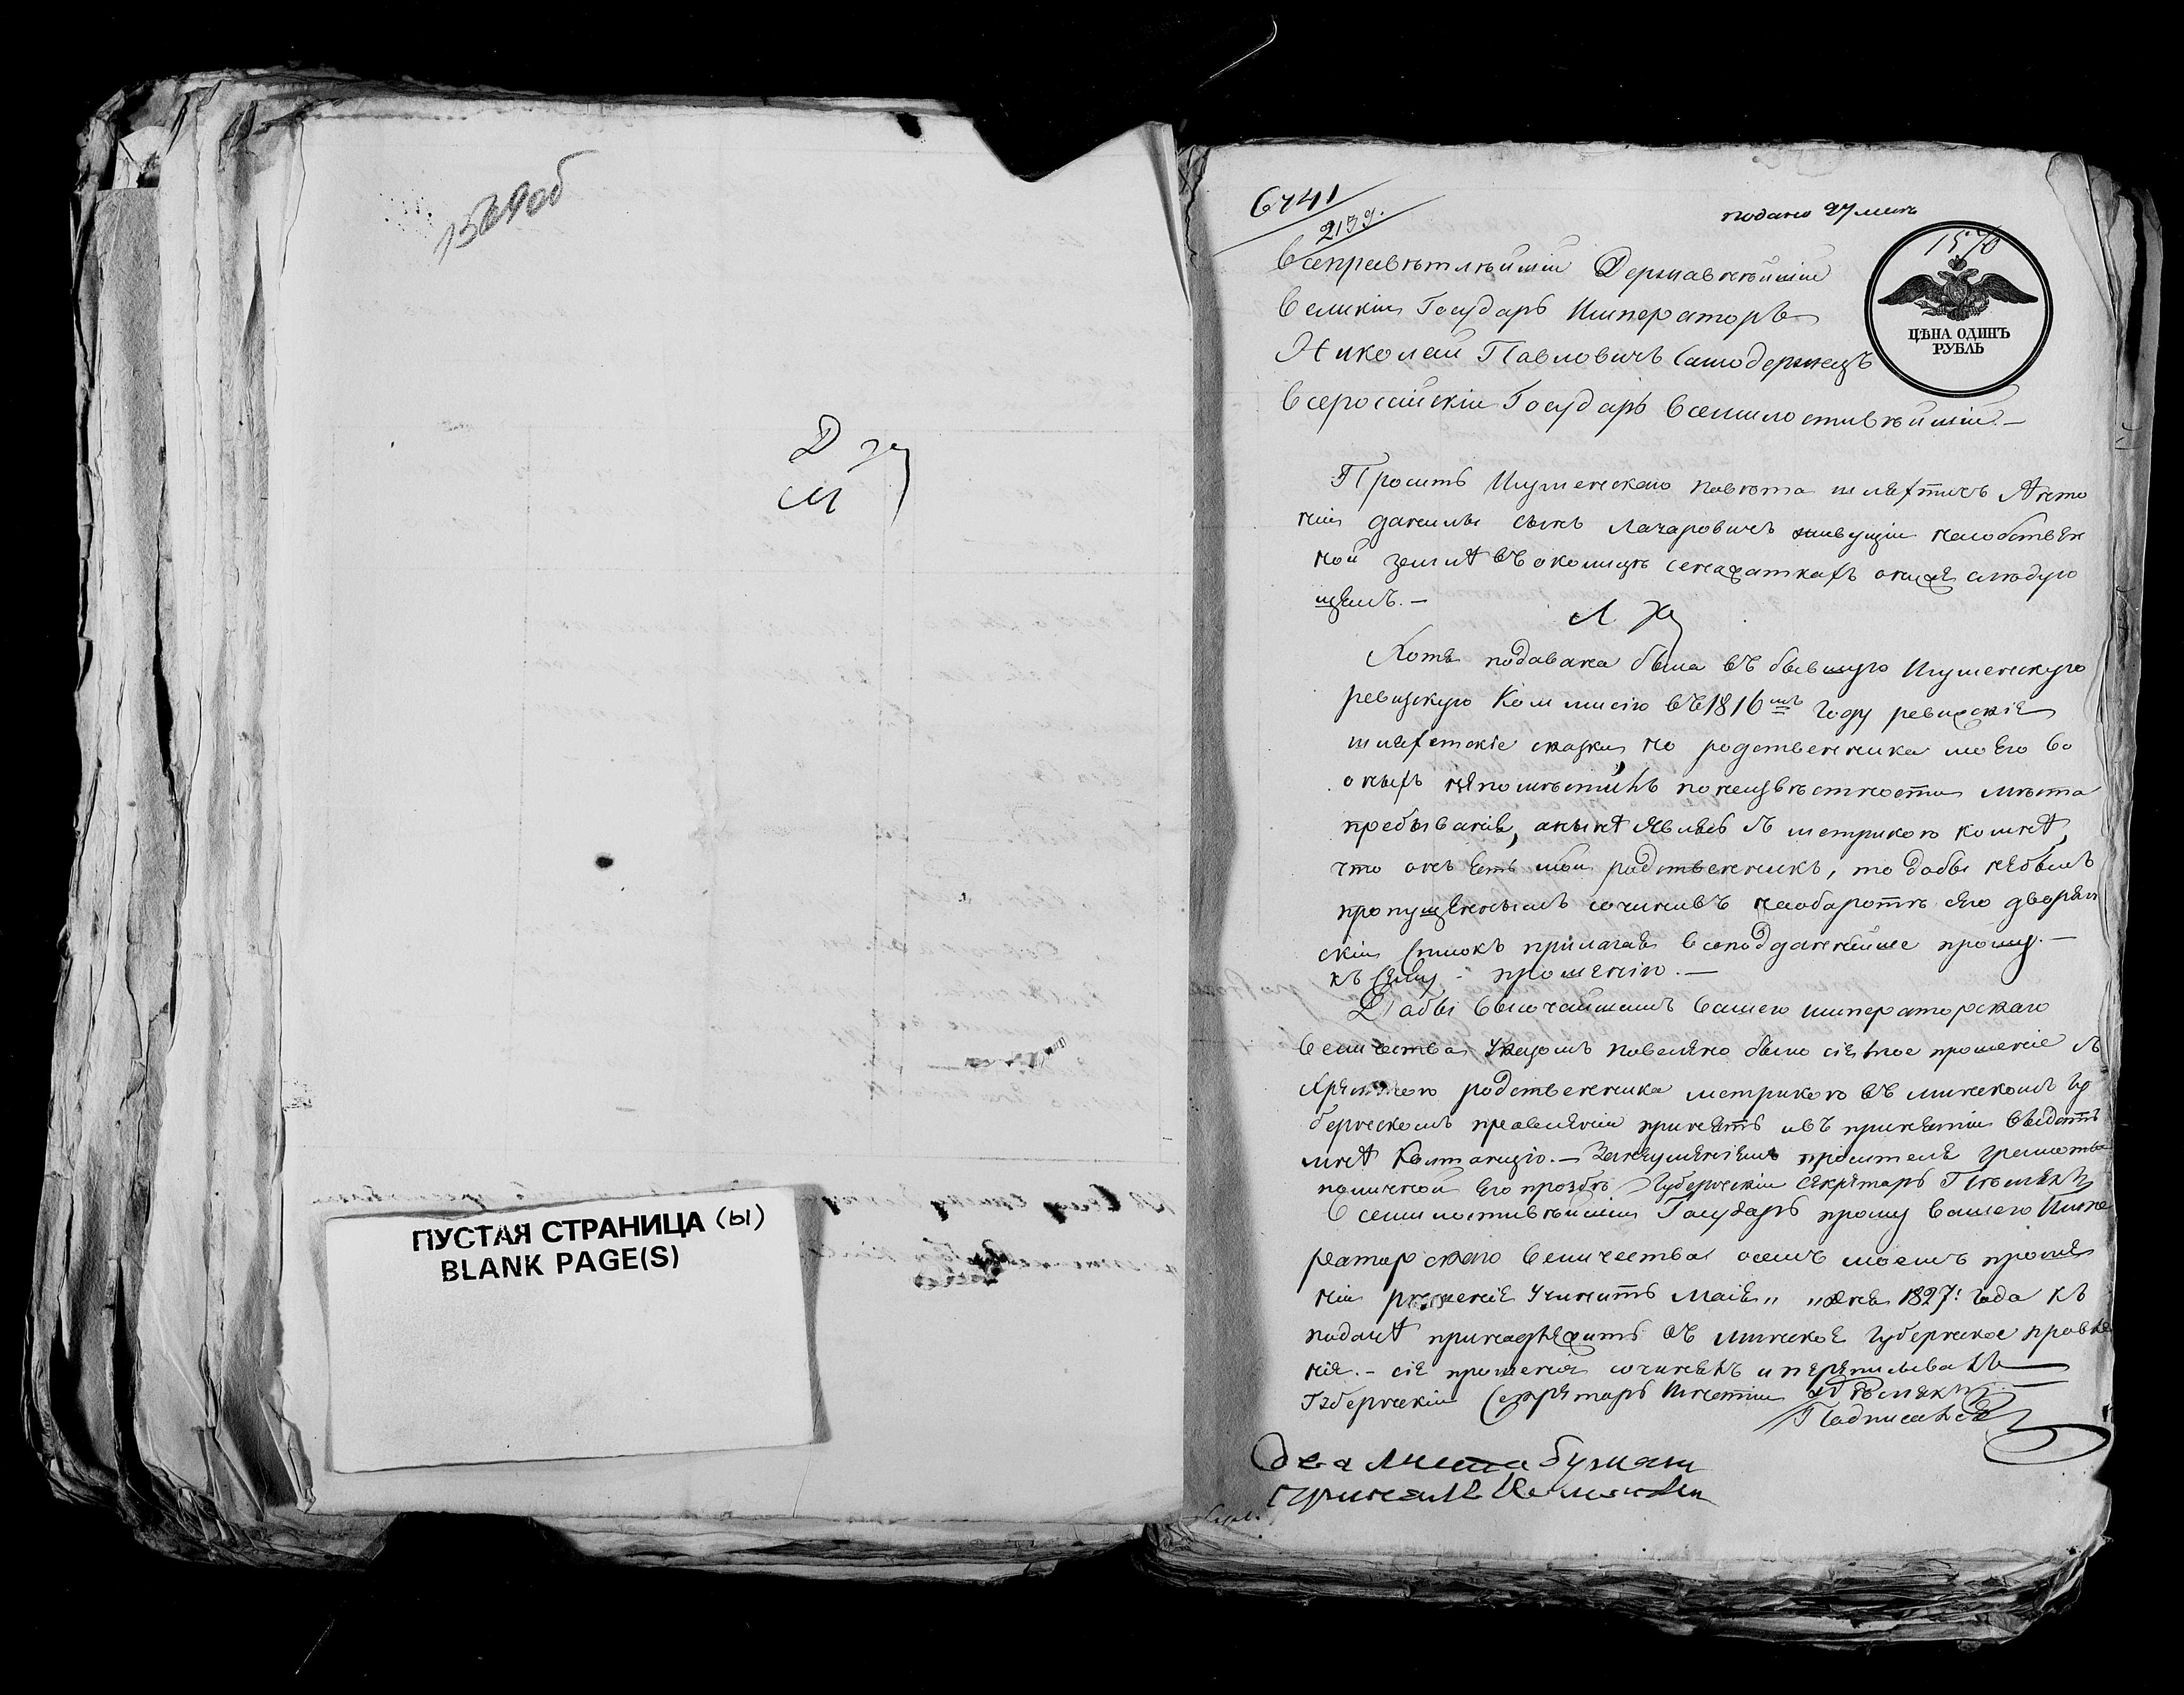 1569об
ПУСТАЯ СТРАНИЦА (Ы)
BLANK PAGE(S)
6741
2139.
подано 27 маія
1570
ЦѢНА ОДИНЪ
РУБЛЬ
Всепресвѣтлѣйшій Державнѣйшій
Великій Государь Императоръ
Николай Павловичъ Самодержецъ
Всеросійскій Государь Всемилостивѣйшій. —
Проситъ Игуменскаго повѣта шляхтичъ Анто
ній Данилы сынъ Лазаровичъ живущій насобствен
ной земли въ околицѣ о нижеслѣдую
щемъ. —
Хотя подавана была въ бывшую Игуменскую
ревизскую Коммисію въ 1816мъ году ревизскіе
шляхетскіе сказки, но родственника моего во
оныхъ непомѣстилъ понеизвѣстности мѣста
пребыванія, анынѣ явясь съ метрикою комнѣ,
что онъ есть мой родственникъ, то дабы небылъ
пропущеннымъ сочинивъ наоборотѣ его дворян
скій списокъ прилагая всеподданнейше прошу. —
къ сему прошенію. —
Дабы высочайшимъ вашего императорскаго
величества указомъ повелено было сіе мое прошеніе съ
родственника метрикою въ минскомъ гу
бернскомъ правленіи принять ивъ принятіи выдать
мнѣ Квитанцію. — Занеуменіемъ просителя грамоты
поличной его прозбѣ Губернскій Секретарь
Всемилостивѣйшій Государь прошу вашего Импе
раторскаго величества осемъ моемъ проше
ніи решеніе учинить маія „ „ дня 1827: года къ
подачѣ принадлежитъ въ минское губернское правле
ніе. — сіе прошеніе сочинялъ и переписывалъ
Губернскій Секретарь
Подписался
два листа бумаги